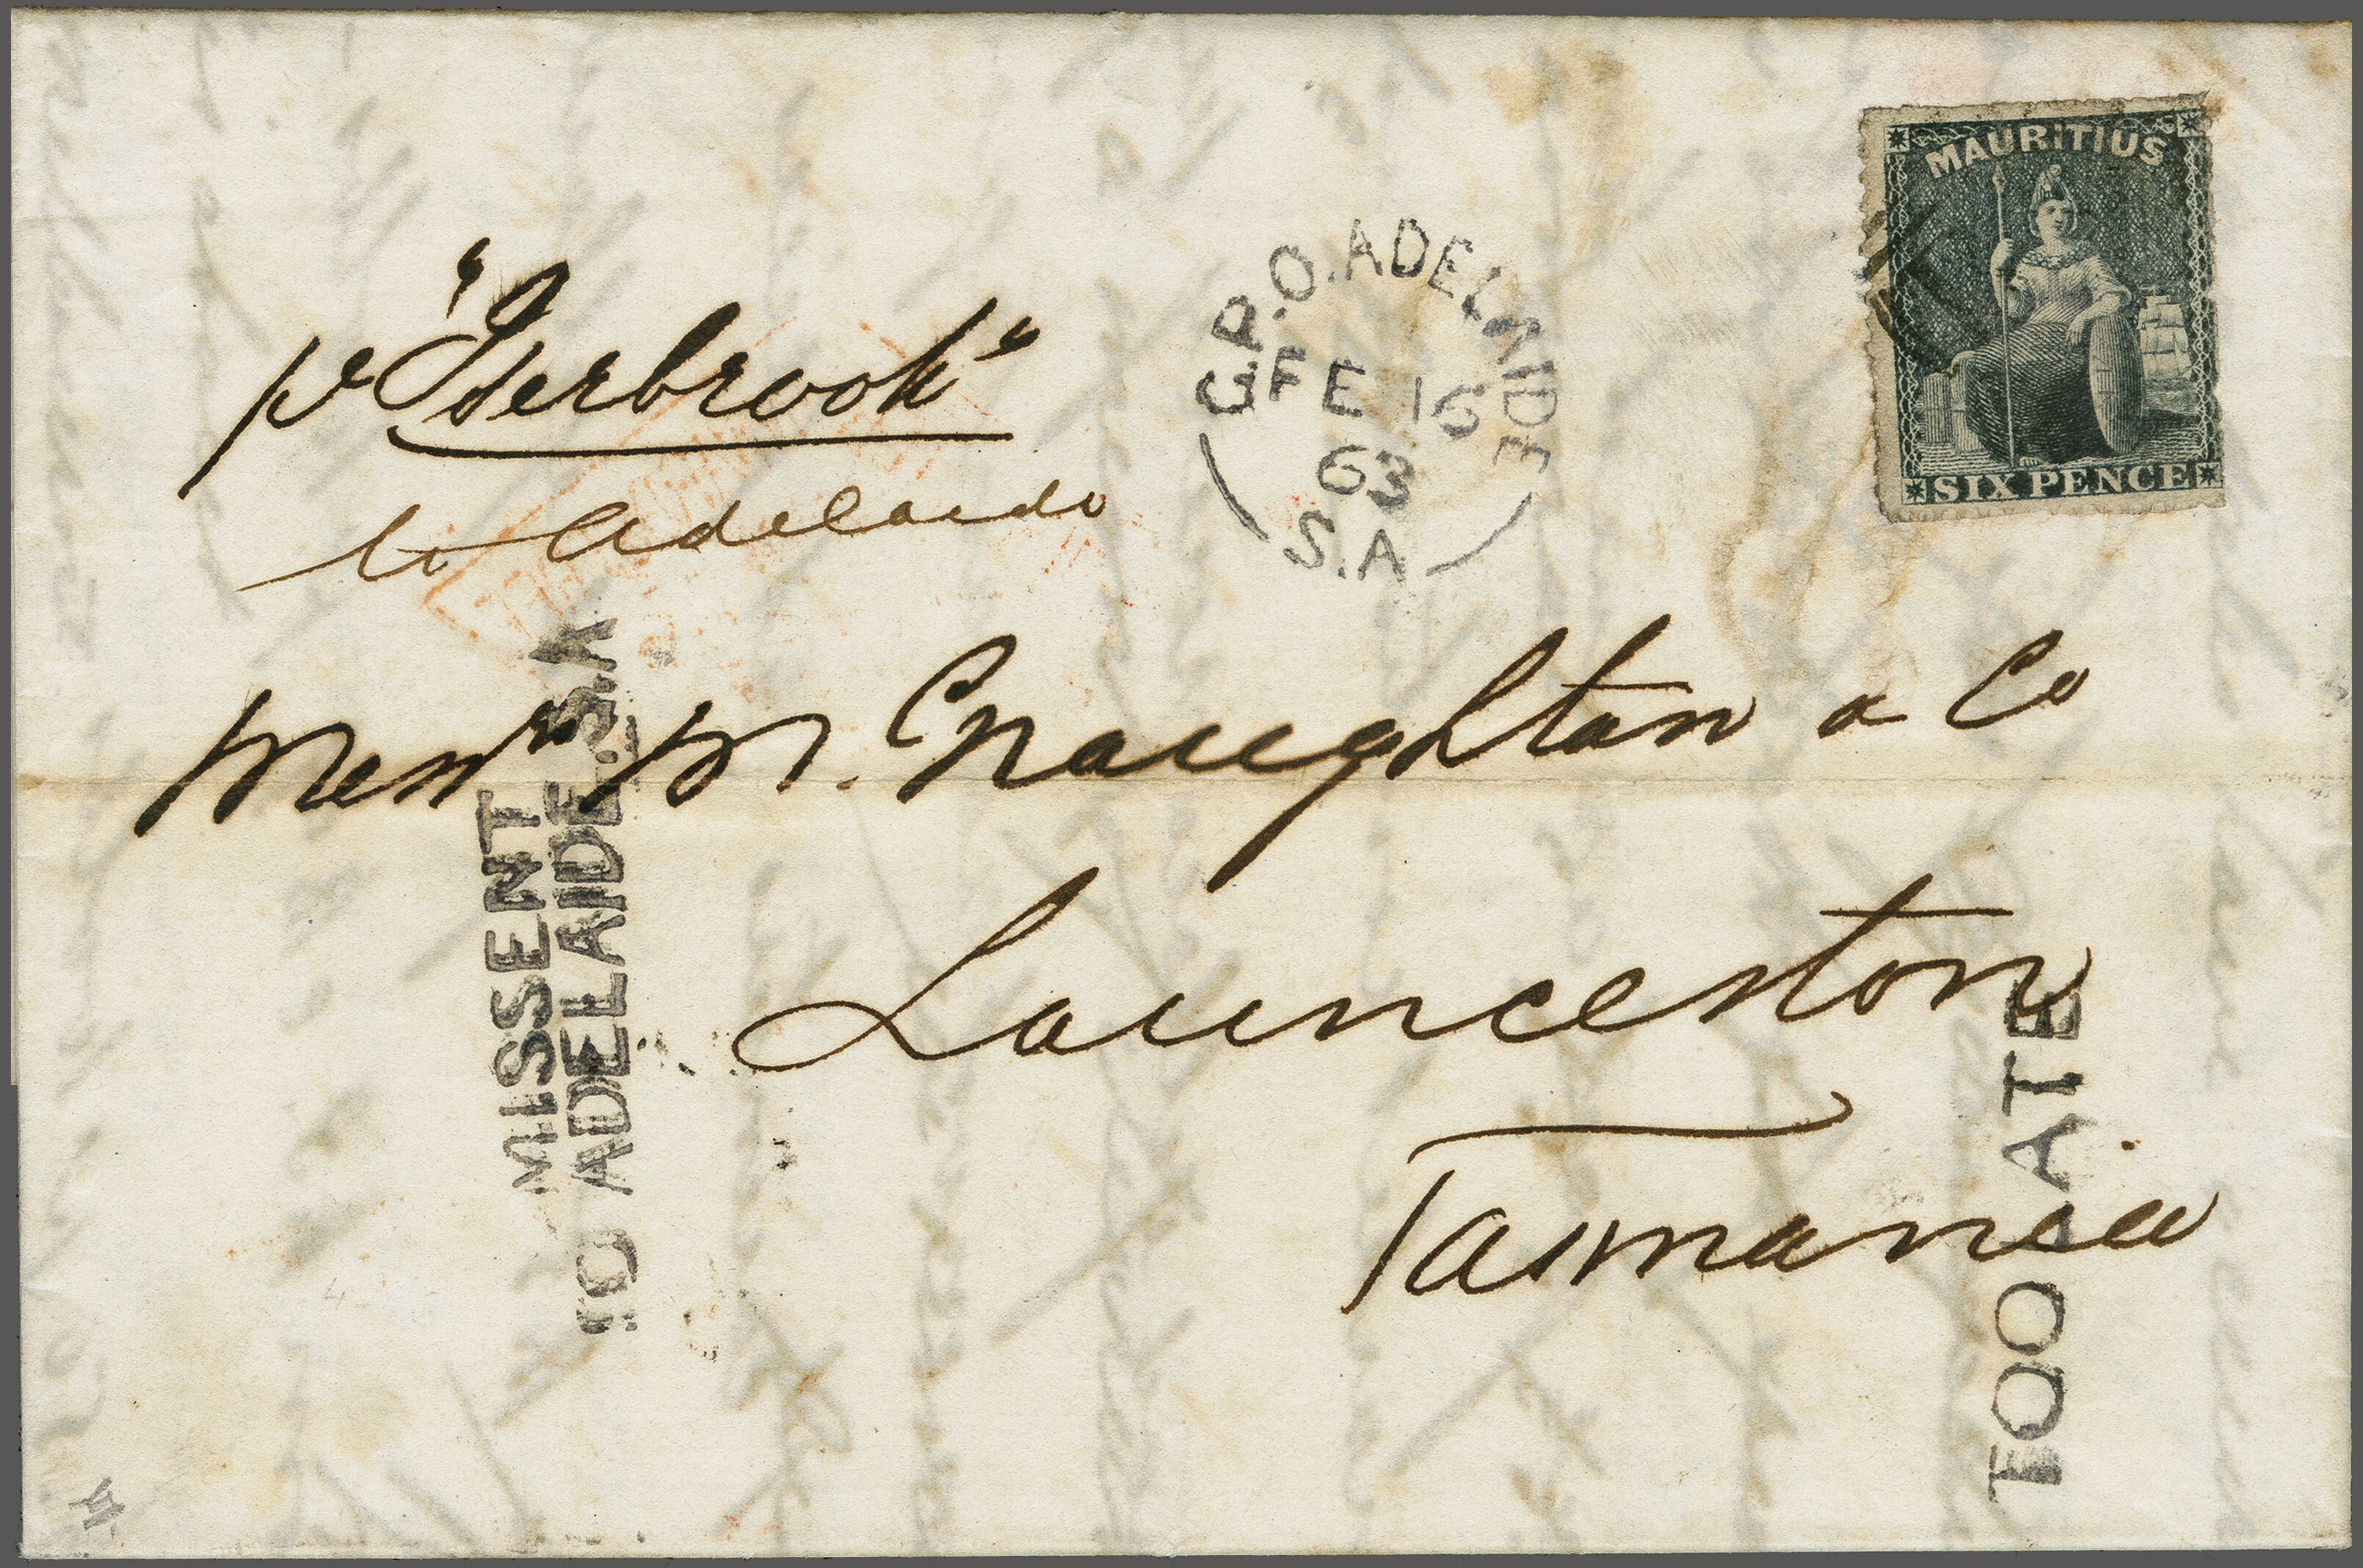 MAURITIUS
SIX PENCE
G.P.O. ADELAIDE
FE 16
63
S.A
pr "Iserbrook"
to Adelaide
Messrs McNaughton & Co
Launceston
Tasmania
MISSENT
TO ADELAIDE.S.A
TOO LATE